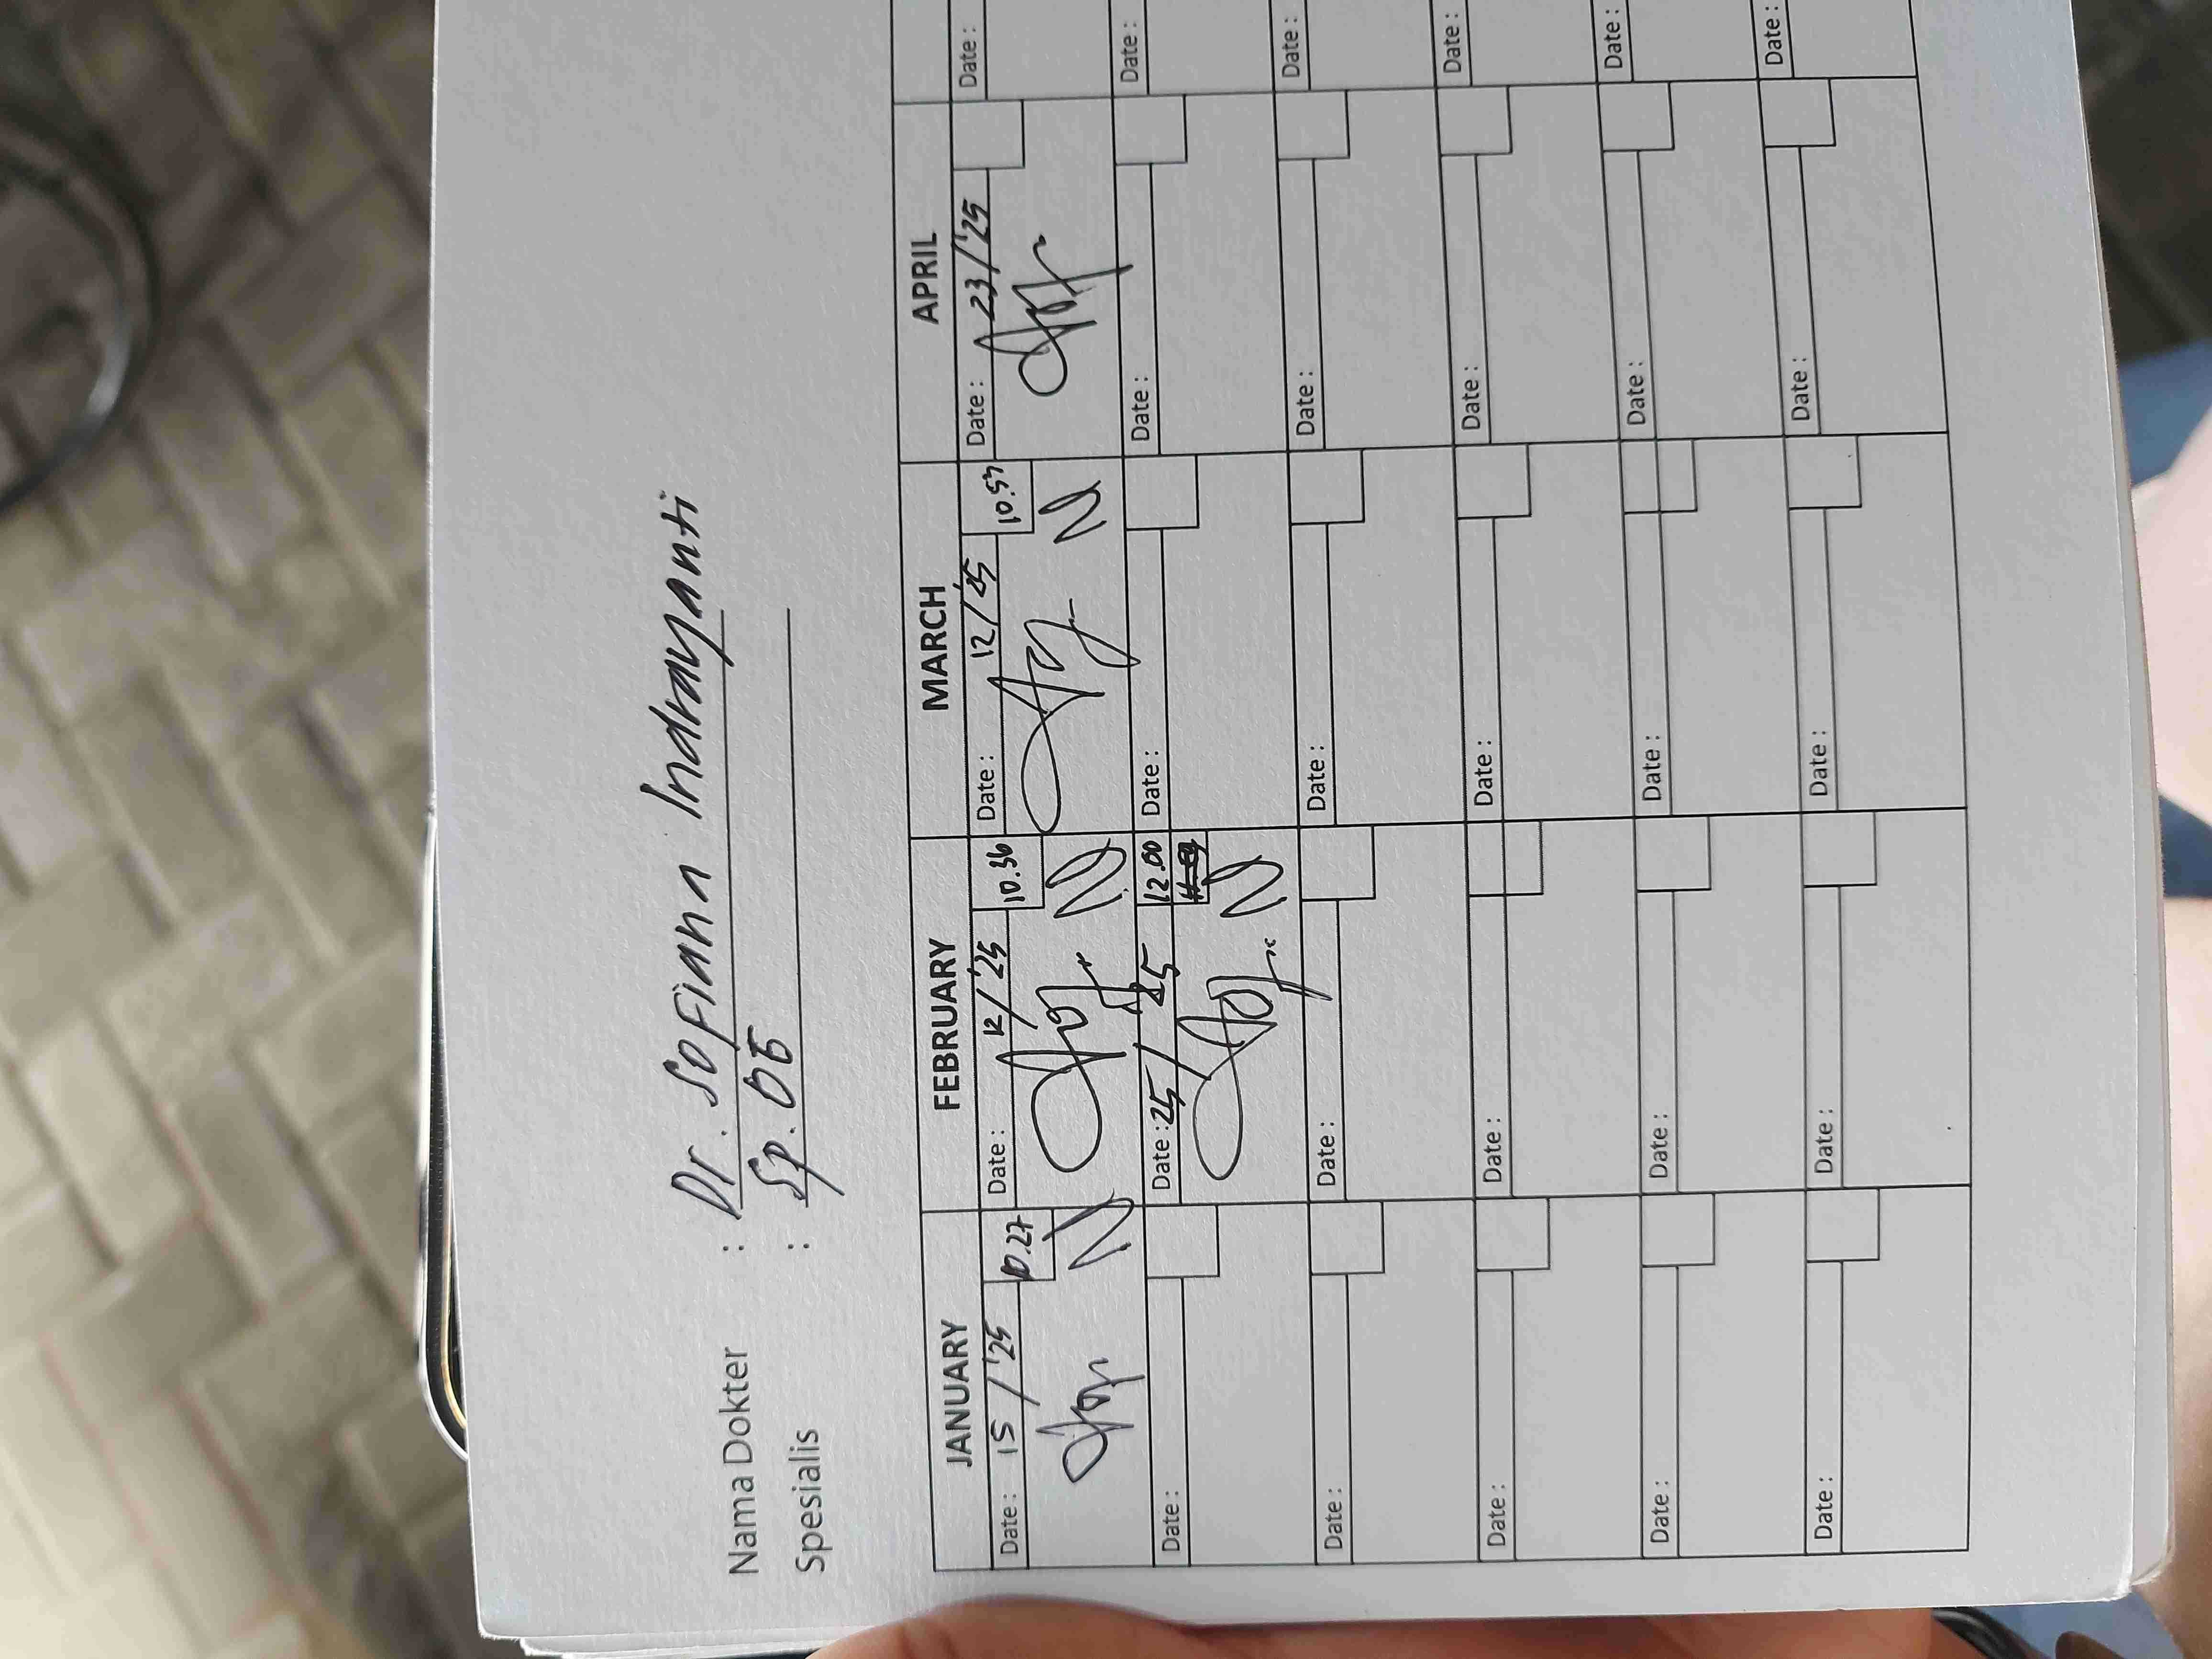 Nama Dokter : Dr. Sofiana Indrayanti
Spesialis : Sp. OG
JANUARY FEBRUARY MARCH APRIL
Date : 15 / '25 10.27 Date : 12 / '25 10.36 Date : 12 / '25 10.57 Date : 23 / '25 Date :
Date : Date : 25 / 25 12.00 Date : Date : Date :
Date : Date : Date : Date : Date :
Date : Date : Date : Date : Date :
Date : Date : Date : Date : Date :
Date : Date : Date : Date : Date :